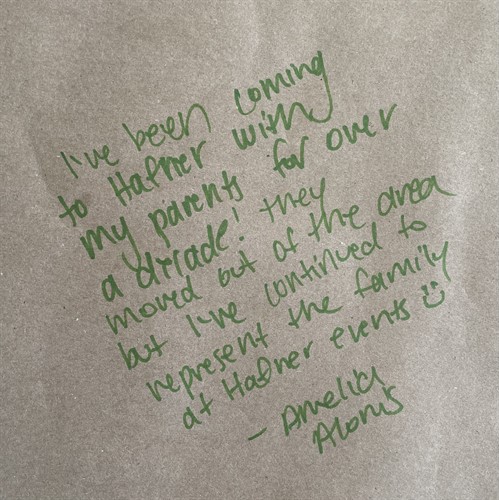 I've been coming
to Hafner with
my parents for over
a decade! They
moved out of the area
but I've continued to
represent the family
at Hafner events :)
- Amelia